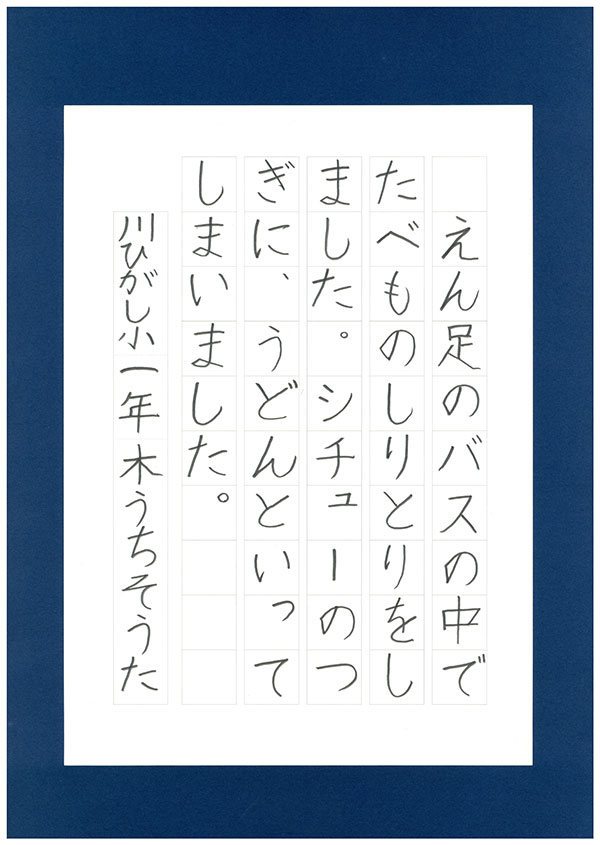 えん足のバスの中で
たべものしりとりをし
ました。シチューのつ
ぎに、うどんといって
しまいました。
川ひがし小一年木うちそうた